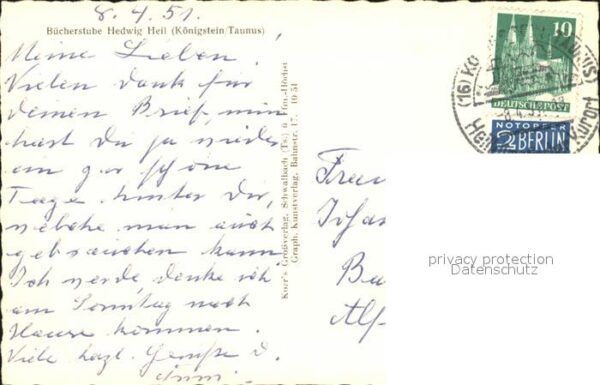 8.4.51.
Bücherstube Hedwig Heil (Königstein/Taunus)
Meine Lieben!
Vielen Dank für
deinen Brief, nun
hast du ja wieder
ein gar schöne
Tage hinter dir,
welche man auch
gebrauchen kann.
Ich werde, denke ich
am Sonntag nach
Hause kommen.
Viele herzl. Grüße d.
Koer's Grußverlag, Schwalbach (Ts.) ü. Ffm.-Höchst
Graph. Kunstverlag, Baumstr. 17. 10 54
10
DEUTSCHE POST
NOTOPFER
2 BERLIN
(16) KÖ
TAUNUS)
Heil
Kurort
Frau
Joha
Ba
Alf
privacy protection
Datenschutz